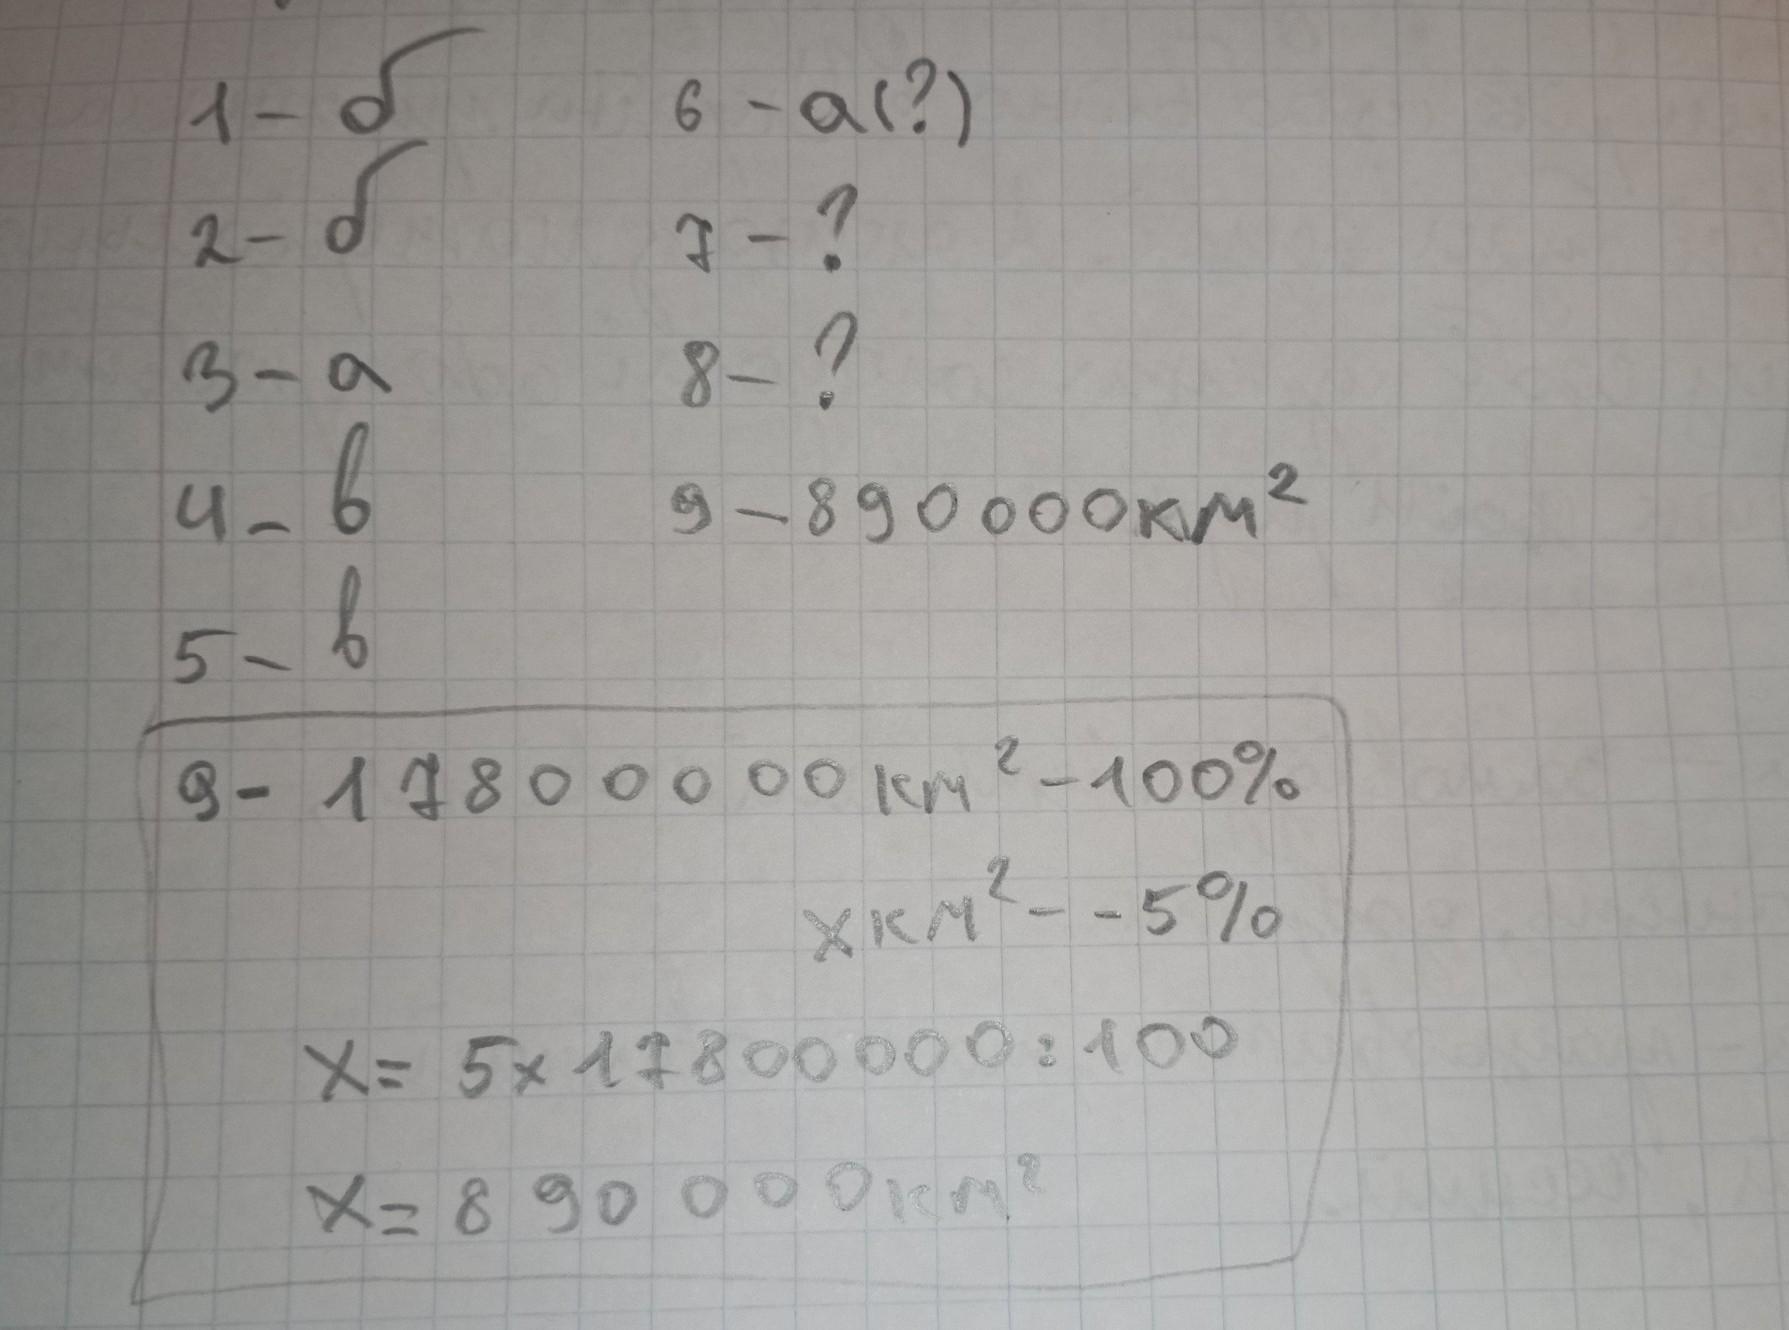 1 - б
2 - б
3 - а
4 - в
5 - в
6 - а(?)
7 - ?
8 - ?
9 - 890000км²
9 - 17800000км² - 100%
хкм² - - 5%
х = 5х17800000:100
х = 890000км²